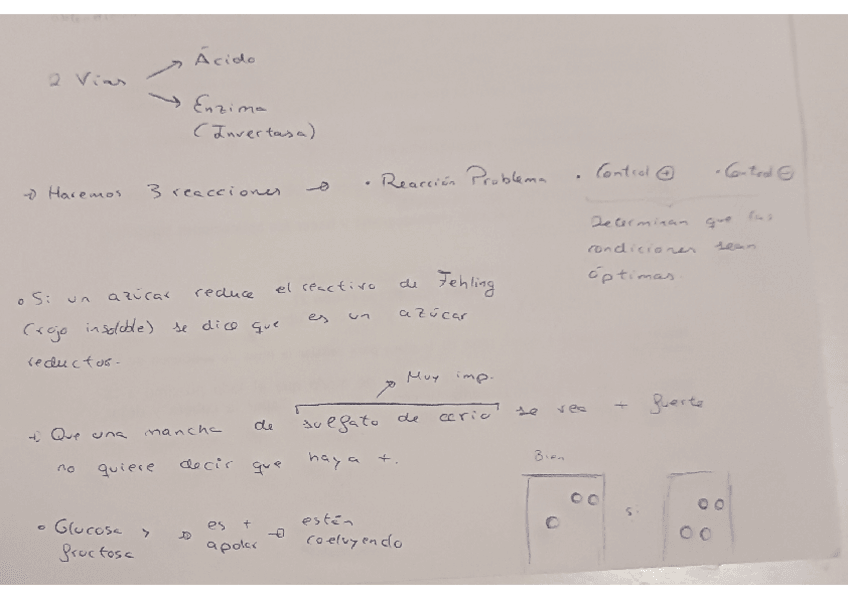 2 Vías
Ácido
Enzima
(Invertasa)
→ Hacemos 3 reacciones → • Reacción Problema • Control ⊕ • Control ⊖
Determinan que las
condiciones sean
óptimas.
• Si un azúcar reduce el reactivo de Fehling
(rojo insoluble) se dice que es un azúcar
reductor.
→ Muy imp.
→ Que una mancha de sulfato de cerio se vea + fuerte
no quiere decir que haya +.
Bien
• Glucosa y → es + → están
fructosa apolar coeluyendo